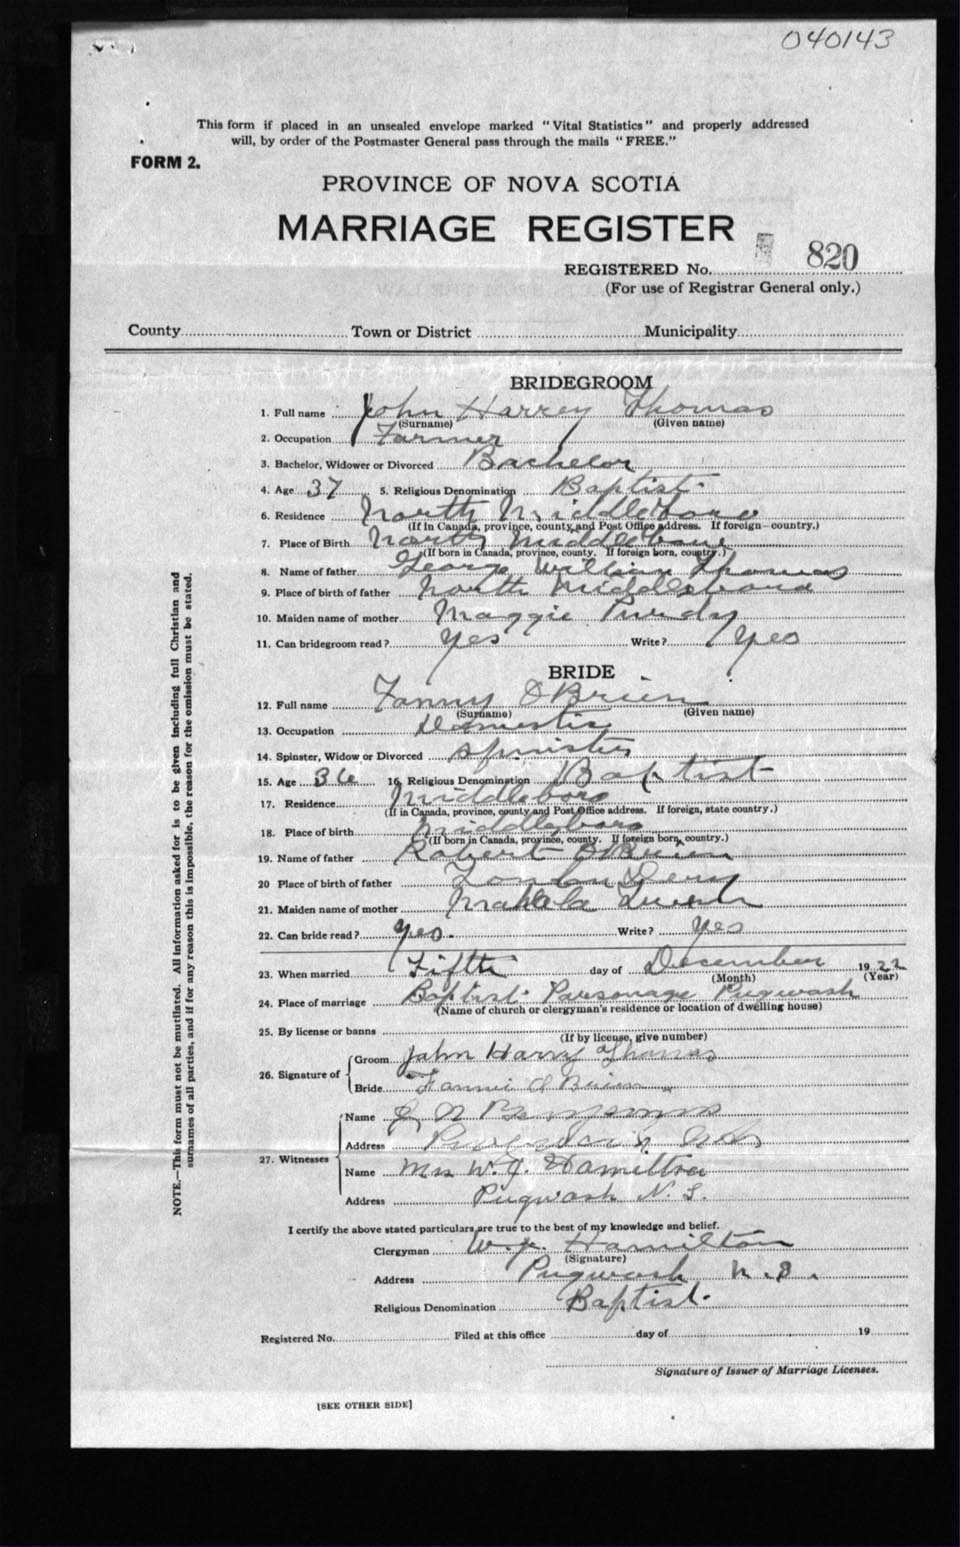 040143
This form if placed in an unsealed envelope marked "Vital Statistics" and properly addressed
will, by order of the Postmaster General pass through the mails "FREE."
FORM 2.
PROVINCE OF NOVA SCOTIA
MARRIAGE REGISTER
REGISTERED No. 820
(For use of Registrar General only.)
County Town or District Municipality
BRIDEGROOM
1. Full name John Harrey Thomas
(Surname) (Given name)
2. Occupation Farmer
3. Bachelor, Widower or Divorced Bachelor
4. Age 37 5. Religious Denomination Baptist
6. Residence North Middleboro
(If in Canada, province, county and Post Office address. If foreign—country.)
7. Place of Birth North Middleboro
(If born in Canada, province, county. If foreign born, country.)
8. Name of father George William Thomas
9. Place of birth of father North Middleboro
10. Maiden name of mother Maggie Purdy
11. Can bridegroom read? Yes Write? Yes
BRIDE
12. Full name Fanny O'Brien
(Surname) (Given name)
13. Occupation Domestic
14. Spinster, Widow or Divorced Spinster
15. Age 36 16. Religious Denomination Baptist
17. Residence Middleboro
(If in Canada, province, county and Post Office address. If foreign, state country.)
18. Place of birth Middleboro
(If born in Canada, province, county. If foreign born, country.)
19. Name of father Robert O'Brien
20 Place of birth of father
21. Maiden name of mother
22. Can bride read? Yes. Write? Yes
23. When married Fifth day of December 1922
(Month) (Year)
24. Place of marriage Baptist Parsonage Pugwash
(Name of church or clergyman's residence or location of dwelling house)
25. By license or banns
(If by license, give number)
26. Signature of Groom John Harry Thomas
Bride Fannie O'Brien
27. Witnesses Name
Address
Name Mrs W. J. Hamilton
Address Pugwash N. S.
I certify the above stated particulars are true to the best of my knowledge and belief.
Clergyman W. J. Hamilton
(Signature)
Address Pugwash N.S.
Religious Denomination Baptist.
Registered No. Filed at this office day of 19
Signature of Issuer of Marriage Licenses.
[SEE OTHER SIDE]
NOTE.—This form must not be mutilated. All information asked for is to be given including full Christian and
surnames of all parties, and if for any reason this is impossible, the reason for the omission must be stated.